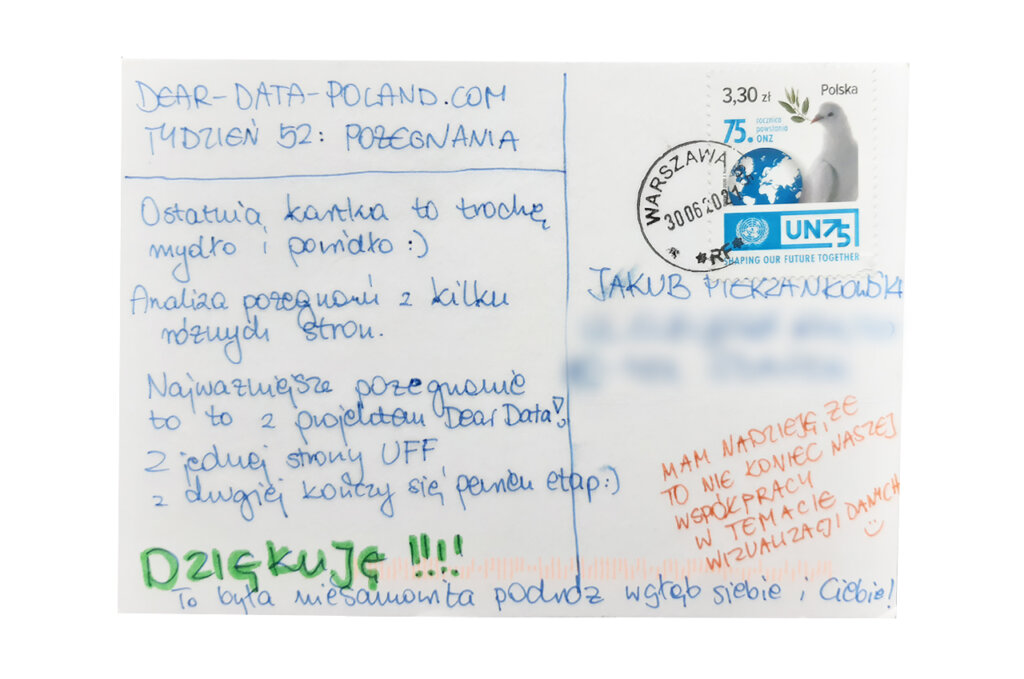 DEAR-DATA-POLAND.COM
TYDZIEŃ 52: POŻEGNANIA
Ostatnia kartka to trochę
mydło i powidło :)
Analiza pożegnań z kilku
różnych stron.
Najważniejsze pożegnanie
to to z projektem Dear Data!
Z jednej strony UFF
z drugiej kończy się pewien etap :)
DZIĘKUJĘ !!!!
To była niesamowita podróż wgłąb siebie i Ciebie!
3,30 zł
Polska
75.
rocznica
powstania
ONZ
WARSZAWA
30062021
*RF*
UN75
SHAPING OUR FUTURE TOGETHER
JAKUB PIERZANKOWSKI
MAM NADZIEJĘ, ŻE
TO NIE KONIEC NASZEJ
WSPÓŁPRACY
W TEMACIE
WIZUALIZACJI DANYCH